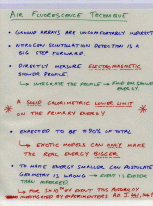 AIR FLUORESCENCE TECHNIQUE
• GROUND ARRAYS ARE UNCOMFORTABLY INDIRECT
• NITROGEN SCINTILLATION DETECTION IS A
BIG STEP FORWARD.
• DIRECTLY MEASURE ELECTROMAGNETIC
SHOWER PROFILE
↳ INTEGRATE THE PROFILE → FIND EM SHOWER
ENERGY
* A SOLID CALORIMETRIC LOWER LIMIT *
ON THE PRIMARY ENERGY
• EXPECTED TO BE ≈ 90% OF TOTAL
↳ EXOTIC MODELS CAN ONLY MAKE
THE REAL ENERGY BIGGER
• TO MAKE ENERGY SMALLER CAN POSTULATE
GEOMETRY IS WRONG → EVENT IS CLOSER
THAN INFERRED
↳ FOR EVENT THIS
BY EXPERIMENTERS